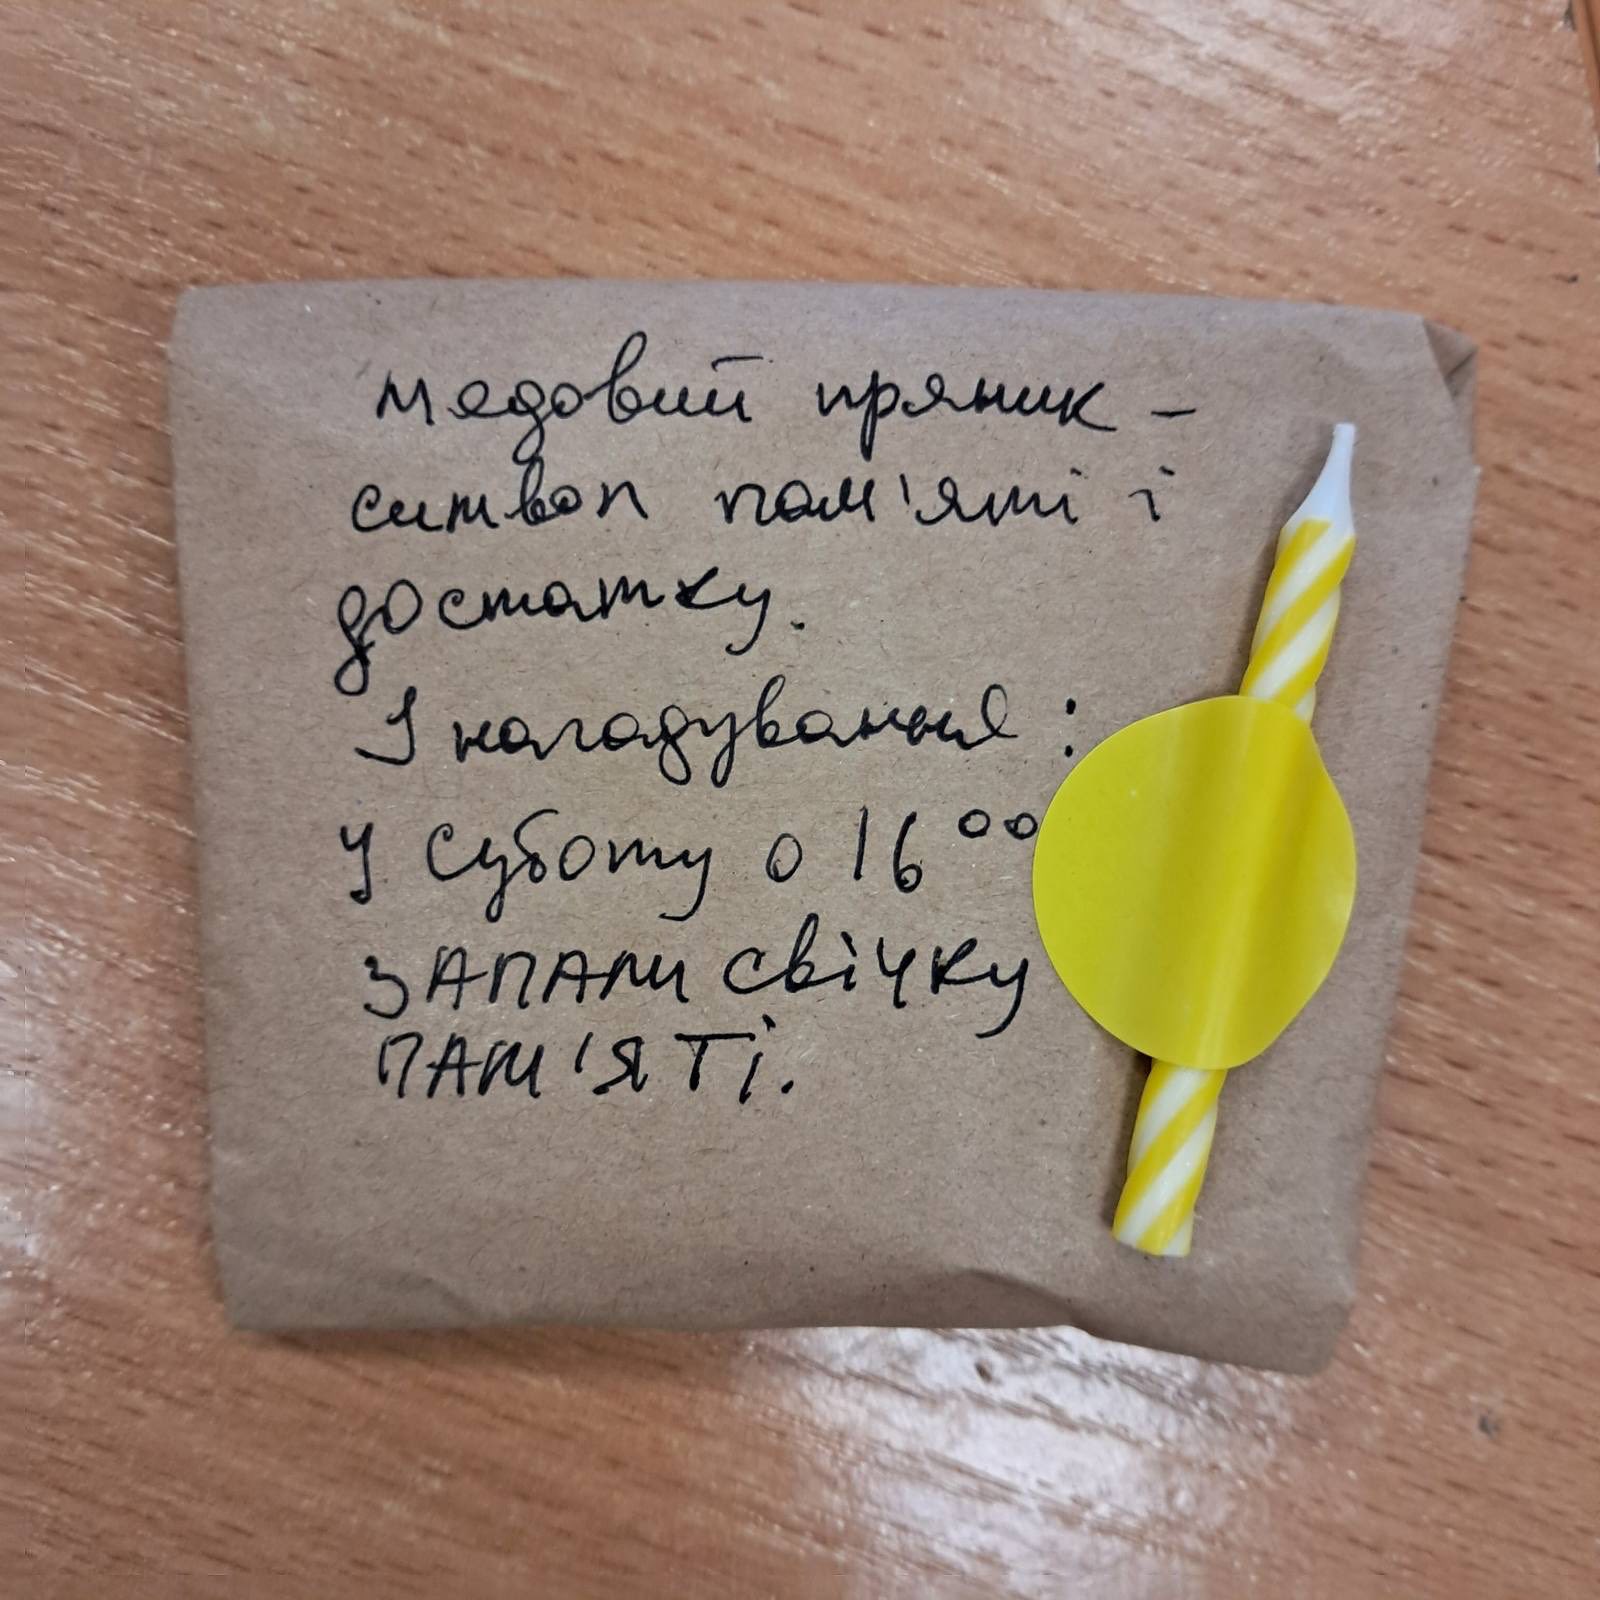 Медовий пряник -
символ пам'яті і
достатку.
І нагадування:
У суботу о 16⁰⁰
ЗАПАЛИ свічку
ПАМ'ЯТІ.